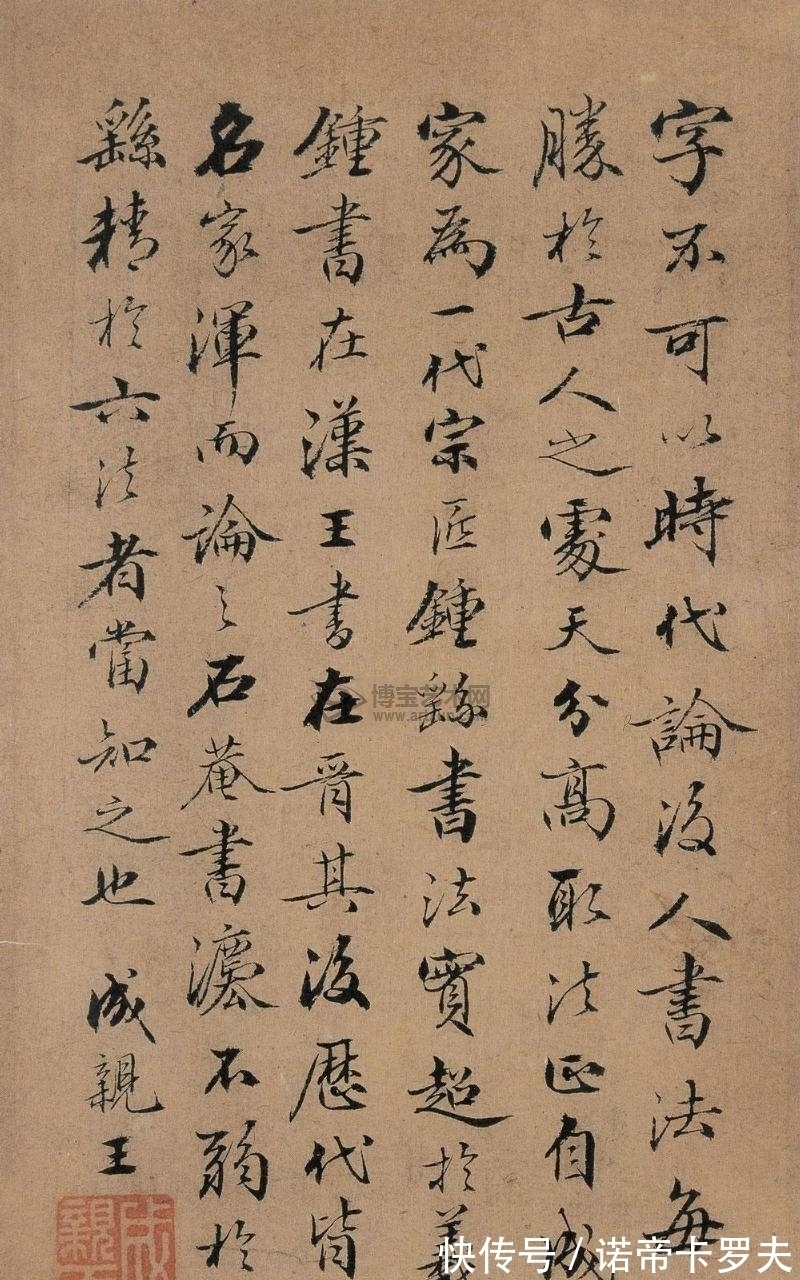 字不可以時代論後人書法每
勝於古人之處天分高取法正自成
家為一代宗匠鍾繇書法實超於羲
鍾書在漢王書在晉其後歷代皆
名家渾而論之石菴書法不弱於
繇精於六法者當知之也 成親王
成親王
博宝艺术网
快传号/诺帝卡罗夫